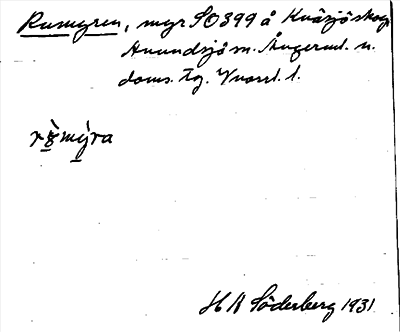 Rumyren, myr SO399 å Kväsjöskog
Anundsjö sn. Ångerml. n.
doms. tg. Vnorrl. l.
rùmỳra
H A Söderberg 1931